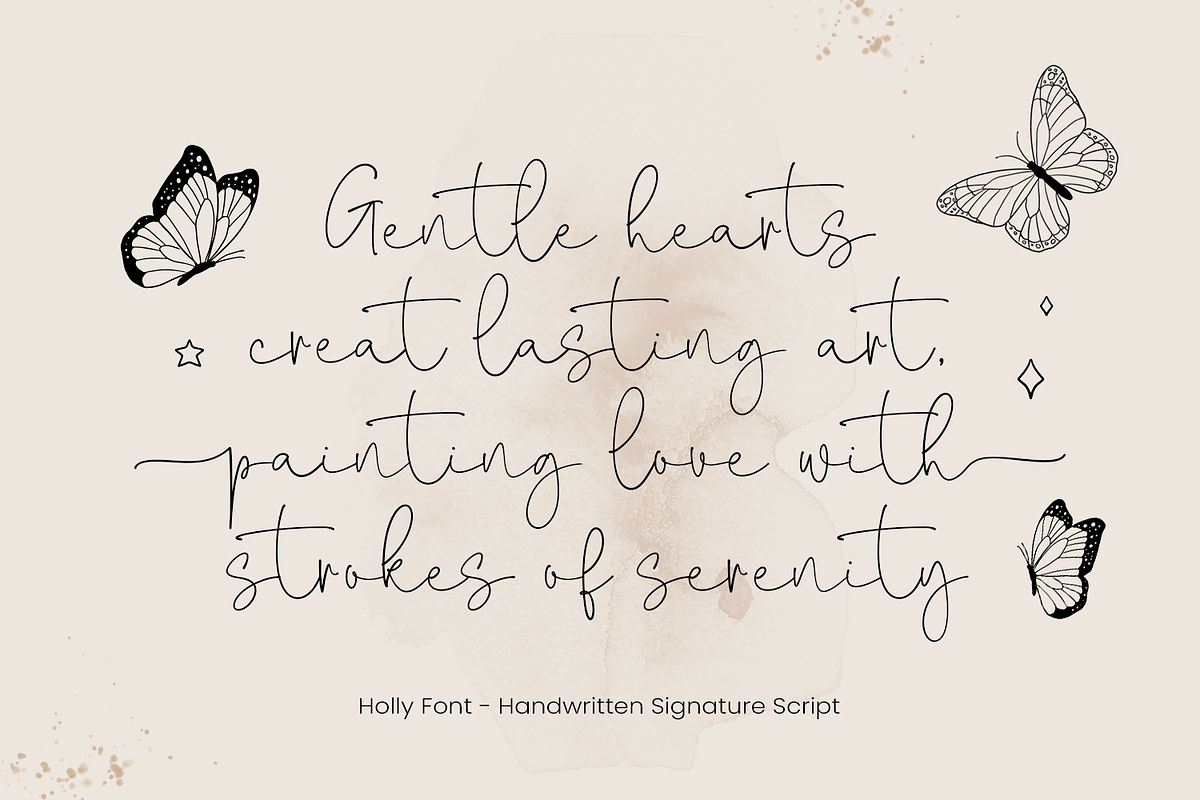 Gentle hearts
creat lasting art,
painting love with
strokes of serenity
Holly Font - Handwritten Signature Script